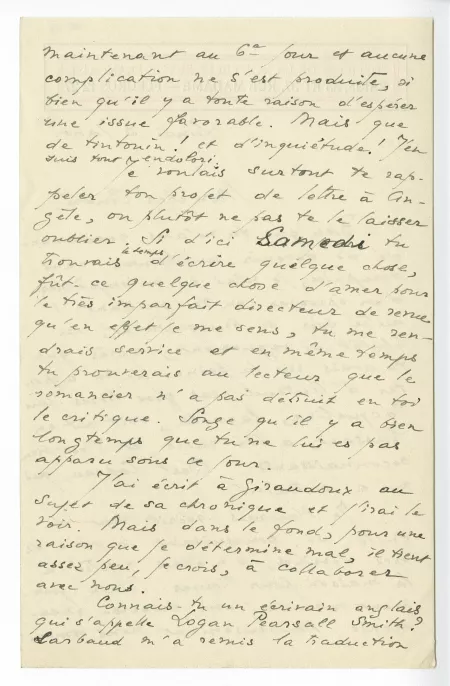 maintenant au 6e jour et aucune
complication ne s'est produite, si
bien qu'il y a toute raison d'espérer
une issue favorable. Mais que
de tintouin! et d'inquiétude! J'en
suis tout endolori.
Je voulais surtout te rap-
peler ton projet de lettre à An-
gèle, ou plutôt ne pas te le laisser
oublier. Si d'ici Samedi tu
trouvais le temps d'écrire quelque chose,
fût-ce quelque chose d'amer pour
le très imparfait directeur de revue
qu'en effet je me sens, tu me ren-
drais service et en même temps
tu prouverais au lecteur que le
romancier n'a pas détruit en toi
le critique. Songe qu'il y a bien
longtemps que tu ne lui es pas
apparu sous ce jour.
J'ai écrit à Giraudoux au
sujet de sa chronique et j'irai le
voir. Mais dans le fond, pour une
raison que je détermine mal, il tient
assez peu, je crois, à collaborer
avec nous.
Connais-tu un écrivain anglais
qui s'appelle Logan Pearsall Smith?
Larbaud m'a remis la traduction